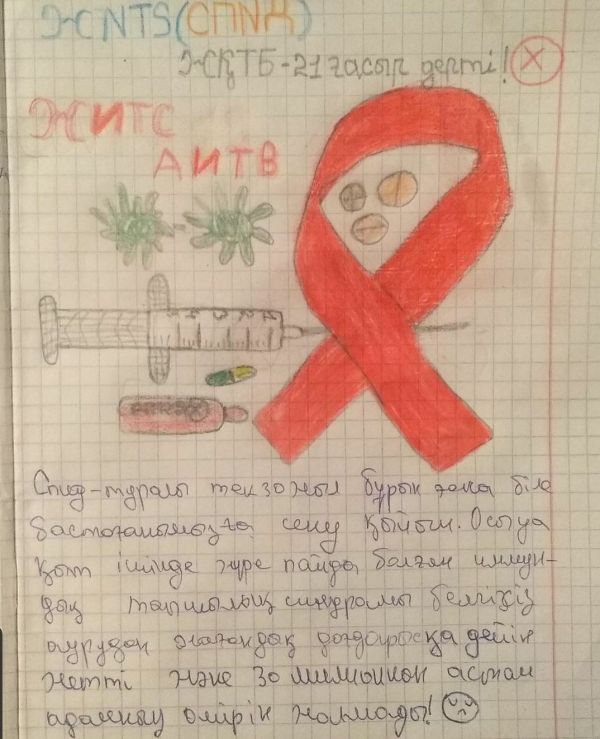 ЖNTS(СПИД)
ЖҚТБ-21 ғасыр дерті!
ЖИТС
АИТВ
Спид-туралы тек 30 жыл бұрын ғана біле
бастағанымызға сену қыйын. Осы уа
қыт ішінде жүре пайда болған иммун-
дық тапшылық синдромы белгісіз
аурудан жаһандық дағдарысқа дейін
жетті және 30 миллионнан астам
адамның өмірін жалмады!